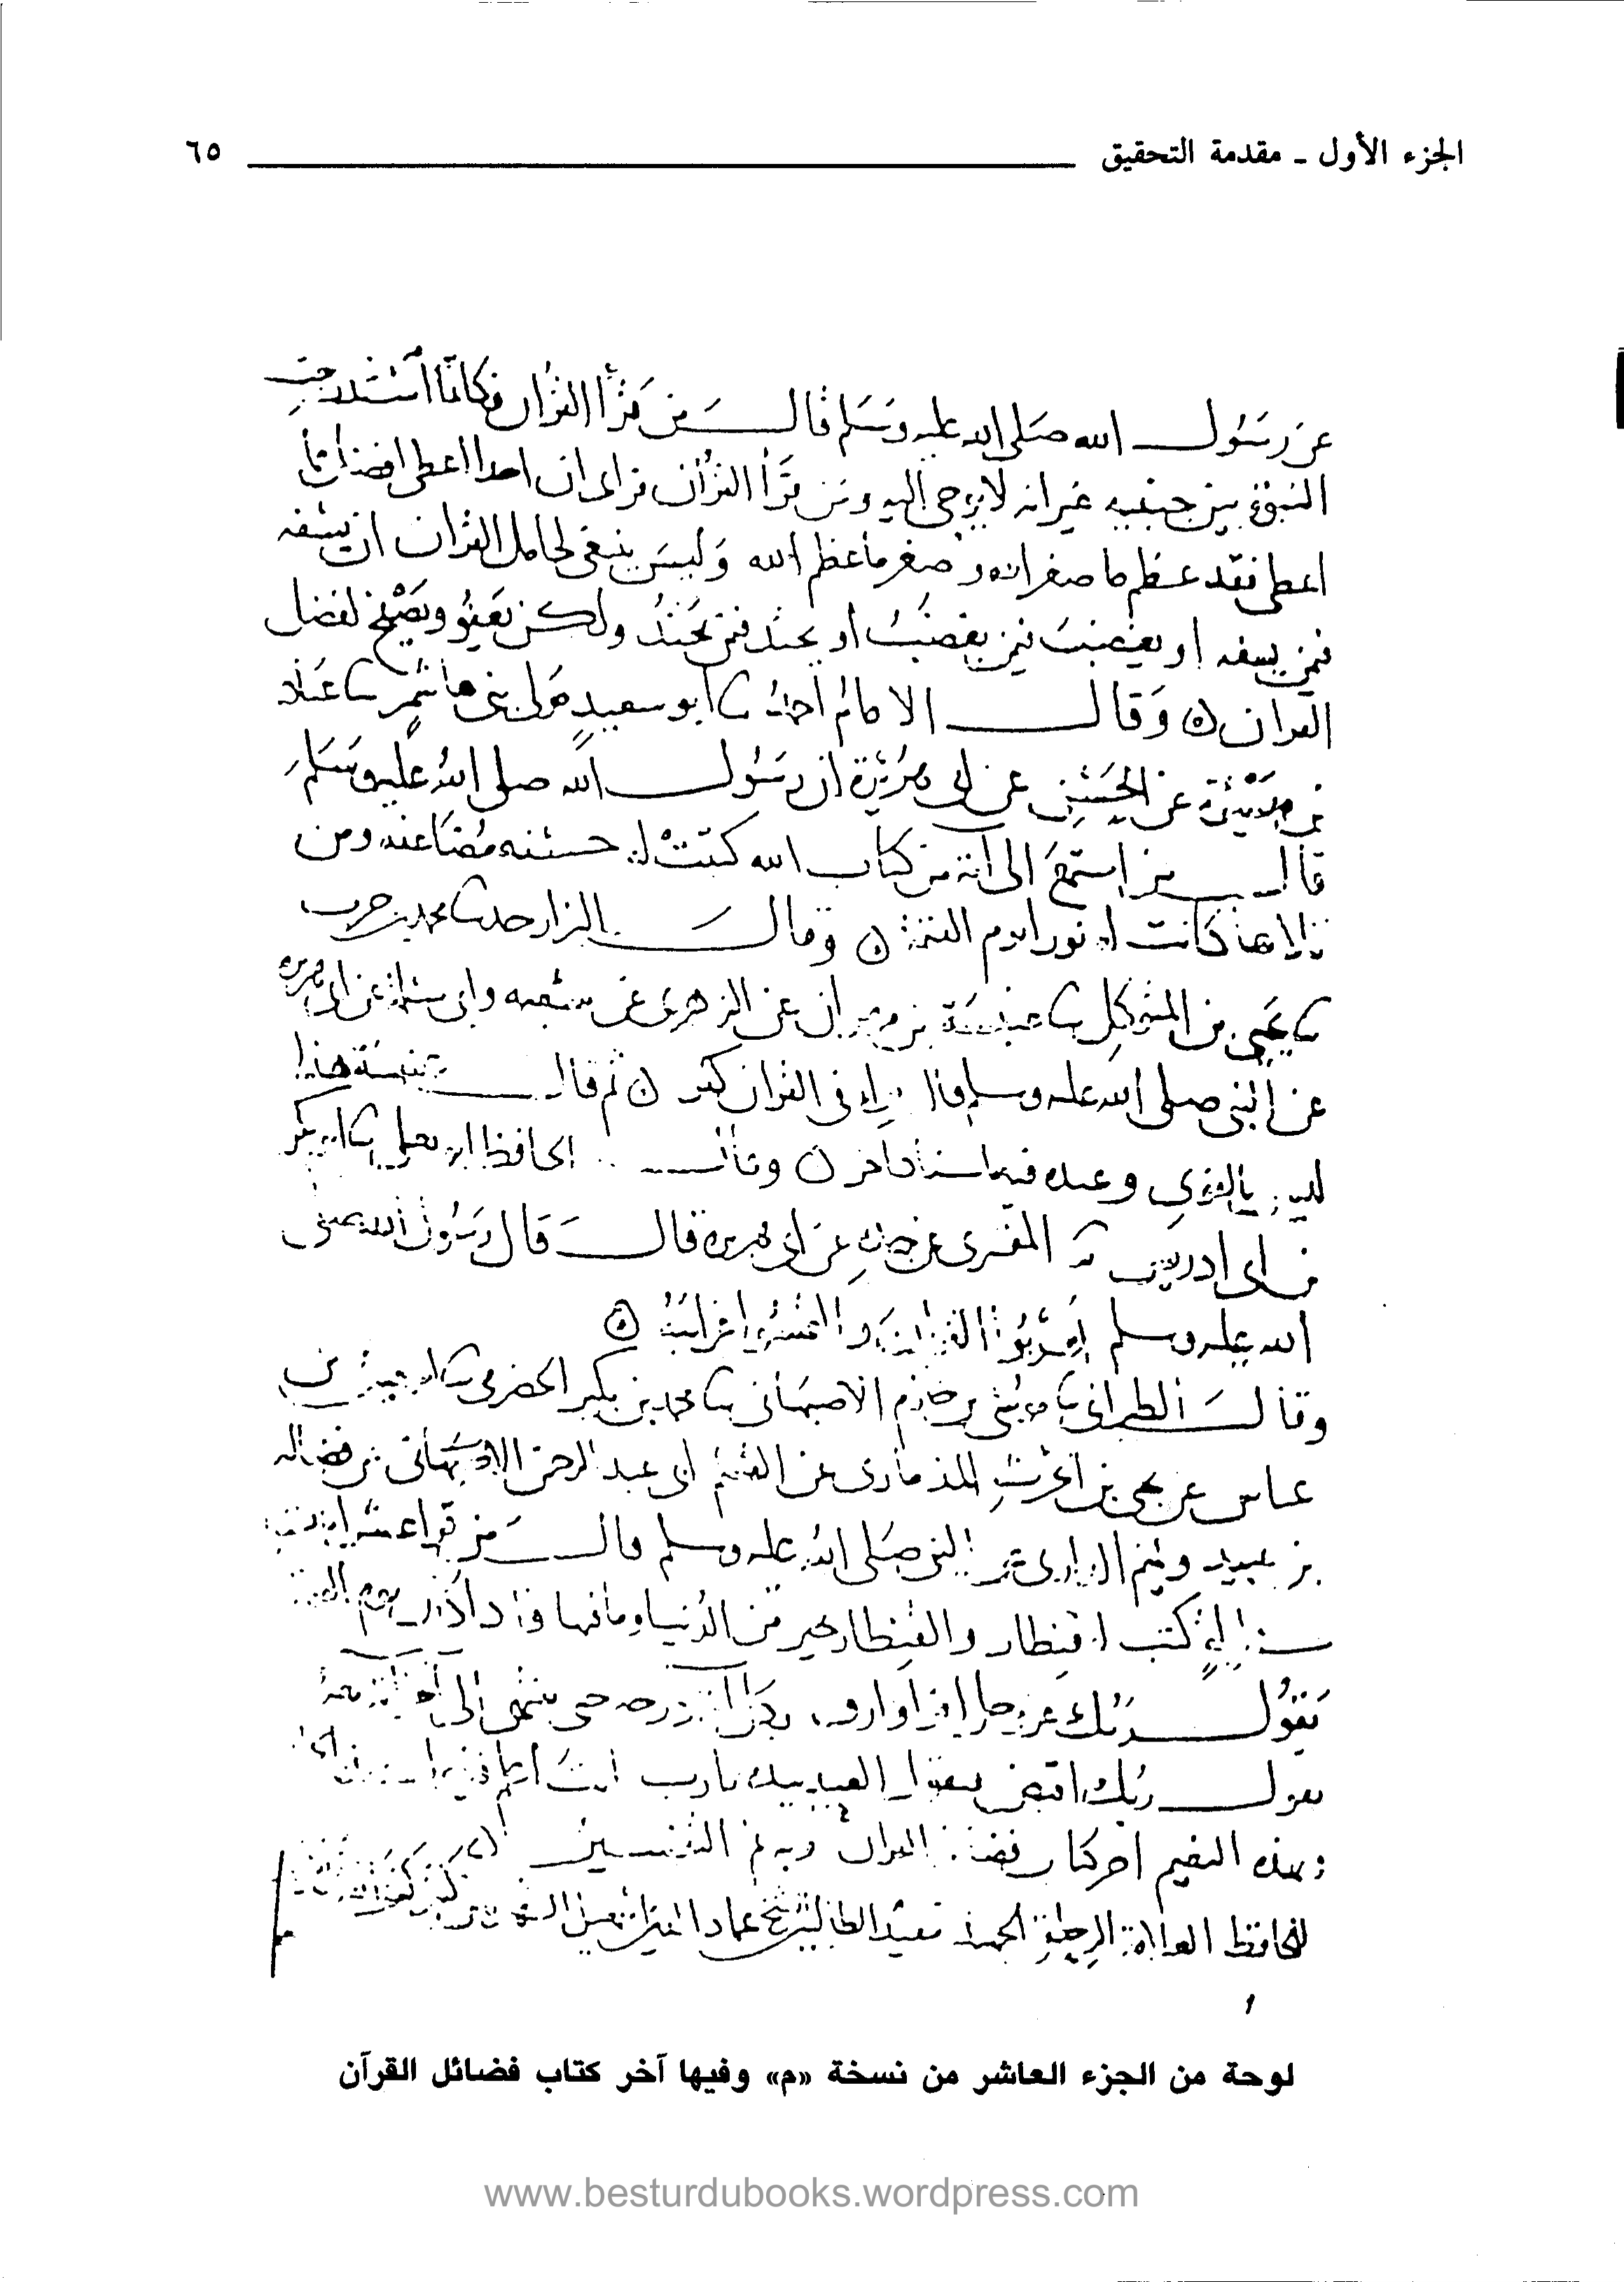 الجزء الأول ـ مقدمة التحقيق ٦٥
عن رسول الله صلى الله عليه وسلم قال من قرأ القرآن فكانما استدرجت
النبوة بين جنبيه غير انه لا يوحى اليه ومن قرأ القرآن فراى ان احدا اعطى افضل مما
اعطى فقد عظم ما صغر الله وصغر ما عظم الله وليس ينبغي لحامل القرآن ان يسفه
فيمن يسفه او يغضب فيمن يغضب او يحتد فيمن يحتد ولكن يعفو ويصفح لفضل
القرآن وقال الامام احمد ثنا أبو سعيد مولى بني هاشم ثنا عباد
بن ميسرة عن الحسن عن ابي هريرة ان رسول الله صلى الله عليه وسلم
قال من استمع الى آية من كتاب الله كتبت له حسنة مضاعفة ومن
تلاها كانت له نورا يوم القيمة وقال البزار حدثنا محمد بن حرب
ثنا يحيى بن المتوكل ثنا عنبسة بن مهران عن الزهري عن سعيد وابي سلمة عن ابي هريرة
عن النبي صلى الله عليه وسلم قال مراء في القران كفر ثم قال عنبسة هذا
ليس بالقوي وعنده فيه اسناد اخر وقال الحافظ ابو يعلى ثنا ابو بكر
بن ابي ادريس المقبري عن جده عن ابي هريرة قال قال رسول الله صلى
الله عليه وسلم اعربوا القرآن والتمسوا غرائبه
وقال الطبراني ثنا موسى بن حازم الاصبهاني ثنا محمد بن بكير الحضرمي ثنا اسمعيل بن
عياش عن يحيى بن الحرث الذماري عن القسم ابي عبد الرحمن عن فضالة
بن عبيد وتميم الداري عن النبي صلى الله عليه وسلم قال من قرا عشر ايات
في ليلة كتب له قنطار والقنطار خير من الدنيا وما فيها فاذا كان يوم القيمة
يقول ربك عز وجل اقرا وارق بكل آية درجة حتى ينتهي الى اخر آية معه
يقول ربك اقبض فيقول العبد بيده يارب انت اعلم فيقول
بهذه النعيم اخر كتاب فضائل القران وبه تم التفسير
للحافظ العلامة الرحلة الجهبذ مفيد الطالبين الشيخ عماد الدين اسمعيل كثير
لوحة من الجزء العاشر من نسخة «م» وفيها آخر كتاب فضائل القرآن
www.besturdubooks.wordpress.com